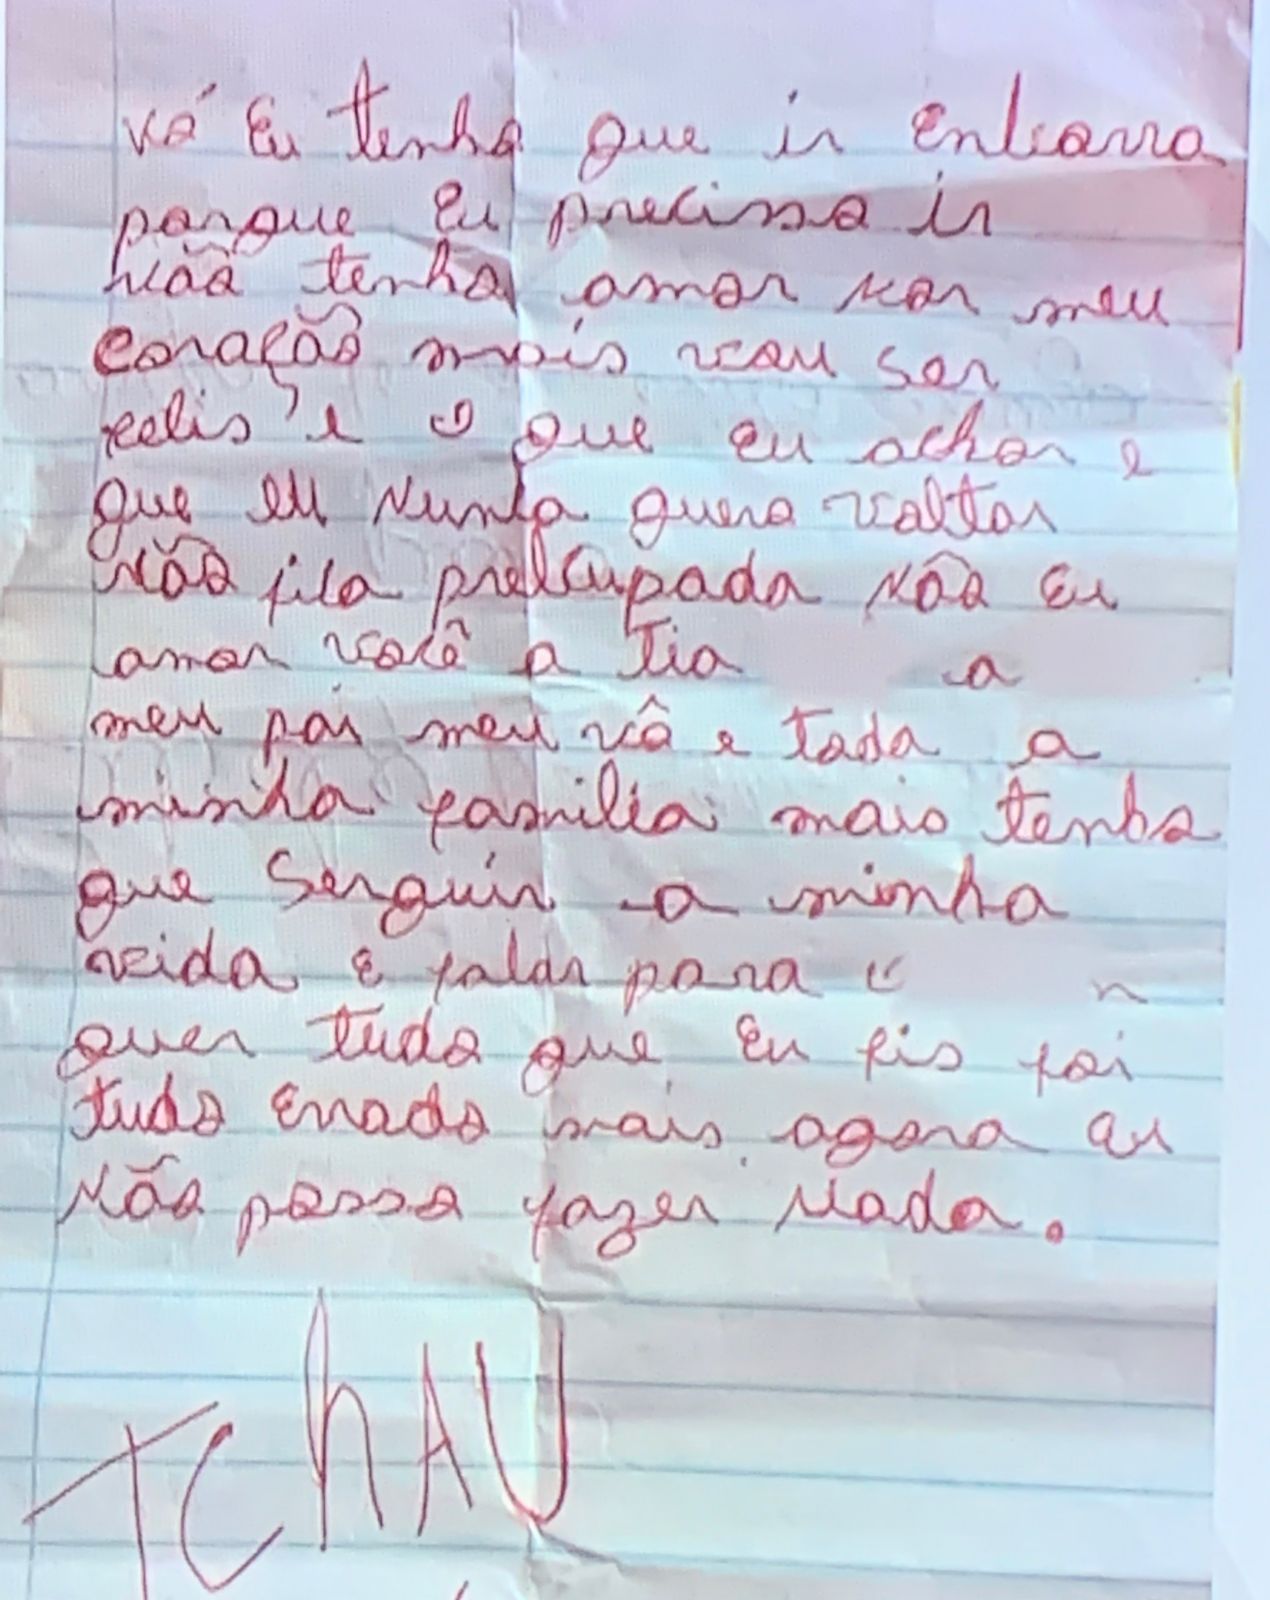 vó Eu tenho que ir Embora
porque Eu precisso ir
Não tenho amor por meu
coração mais vou ser
felis e o que eu achor e
que eu Nunca quero voltar
Não fica preocupada Não Eu
amor você a tia a
meu pai meu vô e toda a
minha familia mais tenho
que Serguir a minha
vida E falar para
quer tudo que Eu fis foi
tudo Errado mais agora eu
Não posso fazer Nada.
TChAU